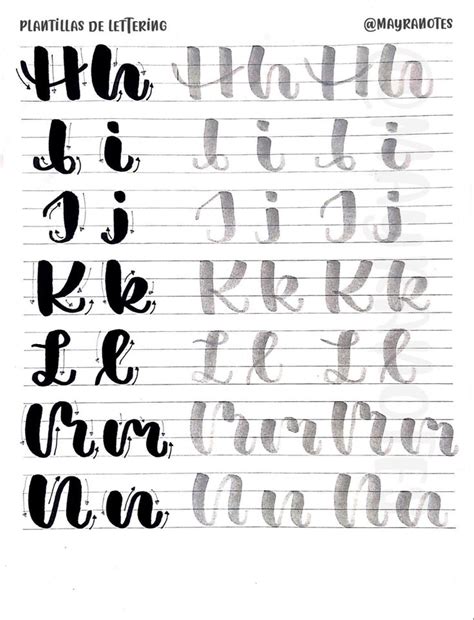 PLANTILLAS DE LETTERING @MAYRANOTES
H h H h H h
I i I i I i
J j J j J j
K k K k K k
L l L l L l
M m M m M m
N n N n N n